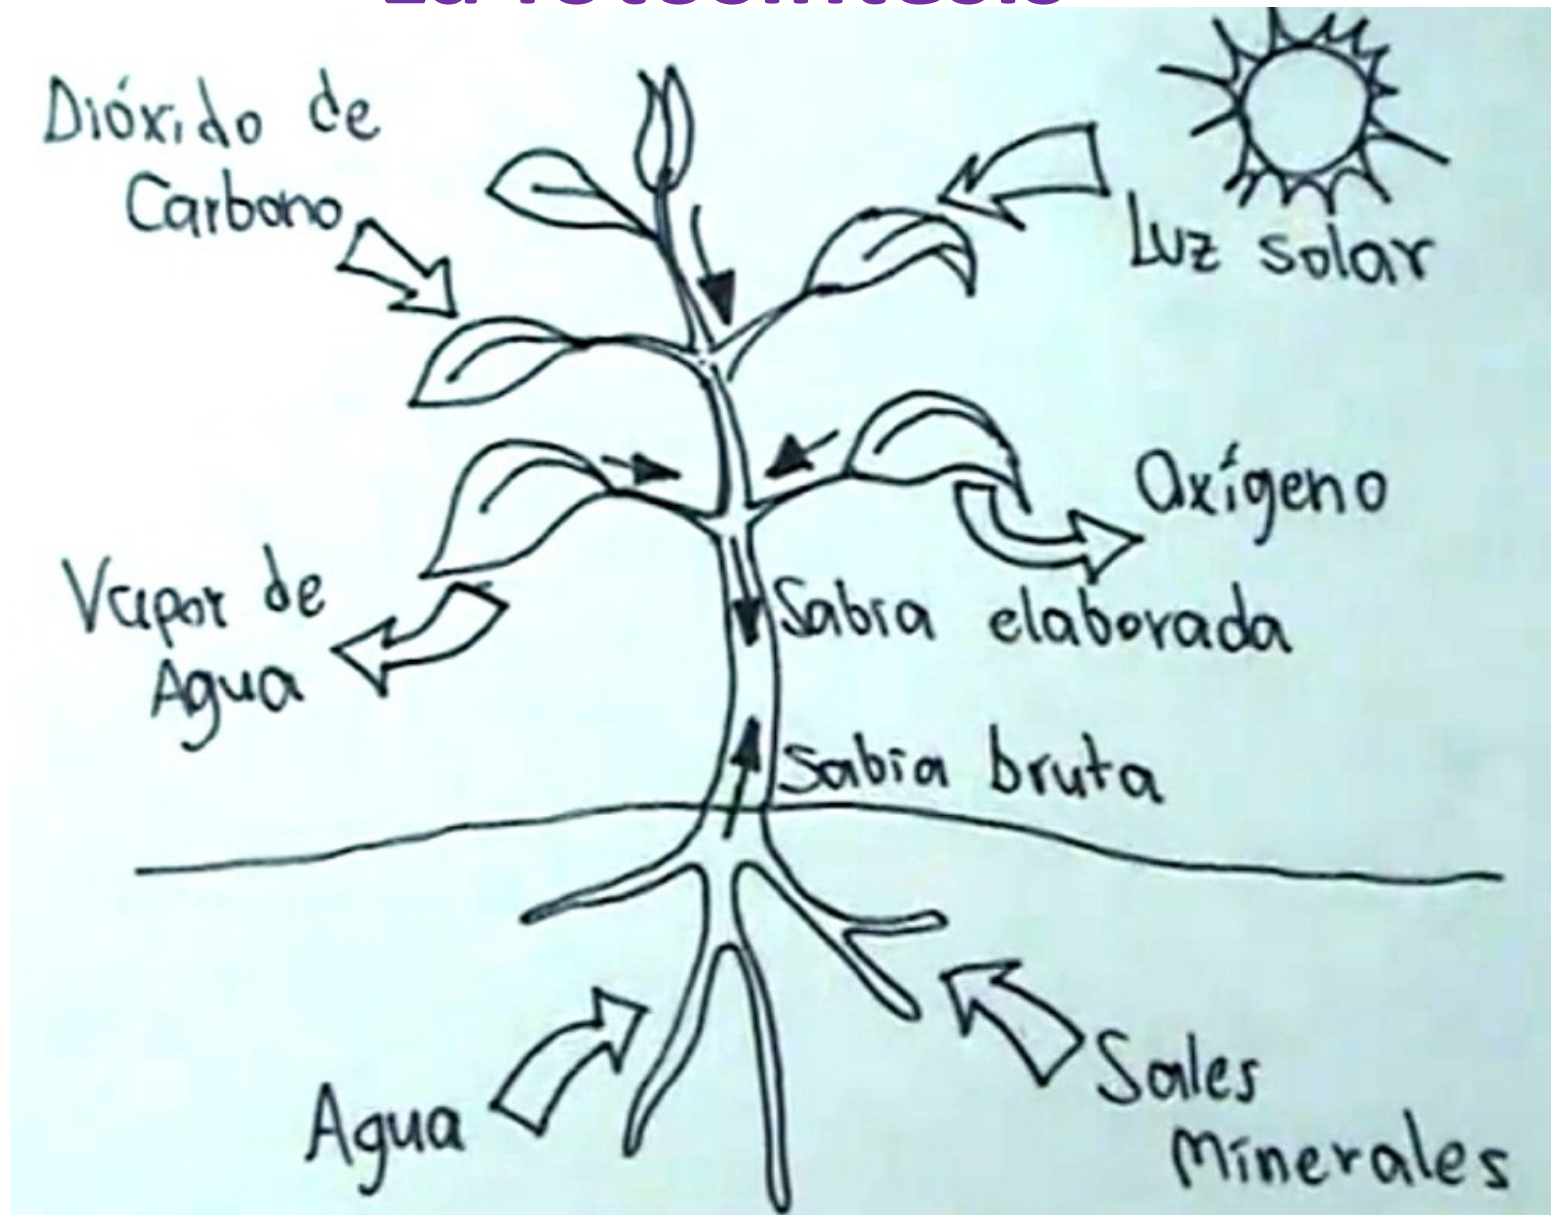 La fotosíntesis
Dióxido de
Carbono
Luz solar
Oxígeno
Vapor de
Agua
Sabia elaborada
Sabia bruta
Agua
Sales
Minerales